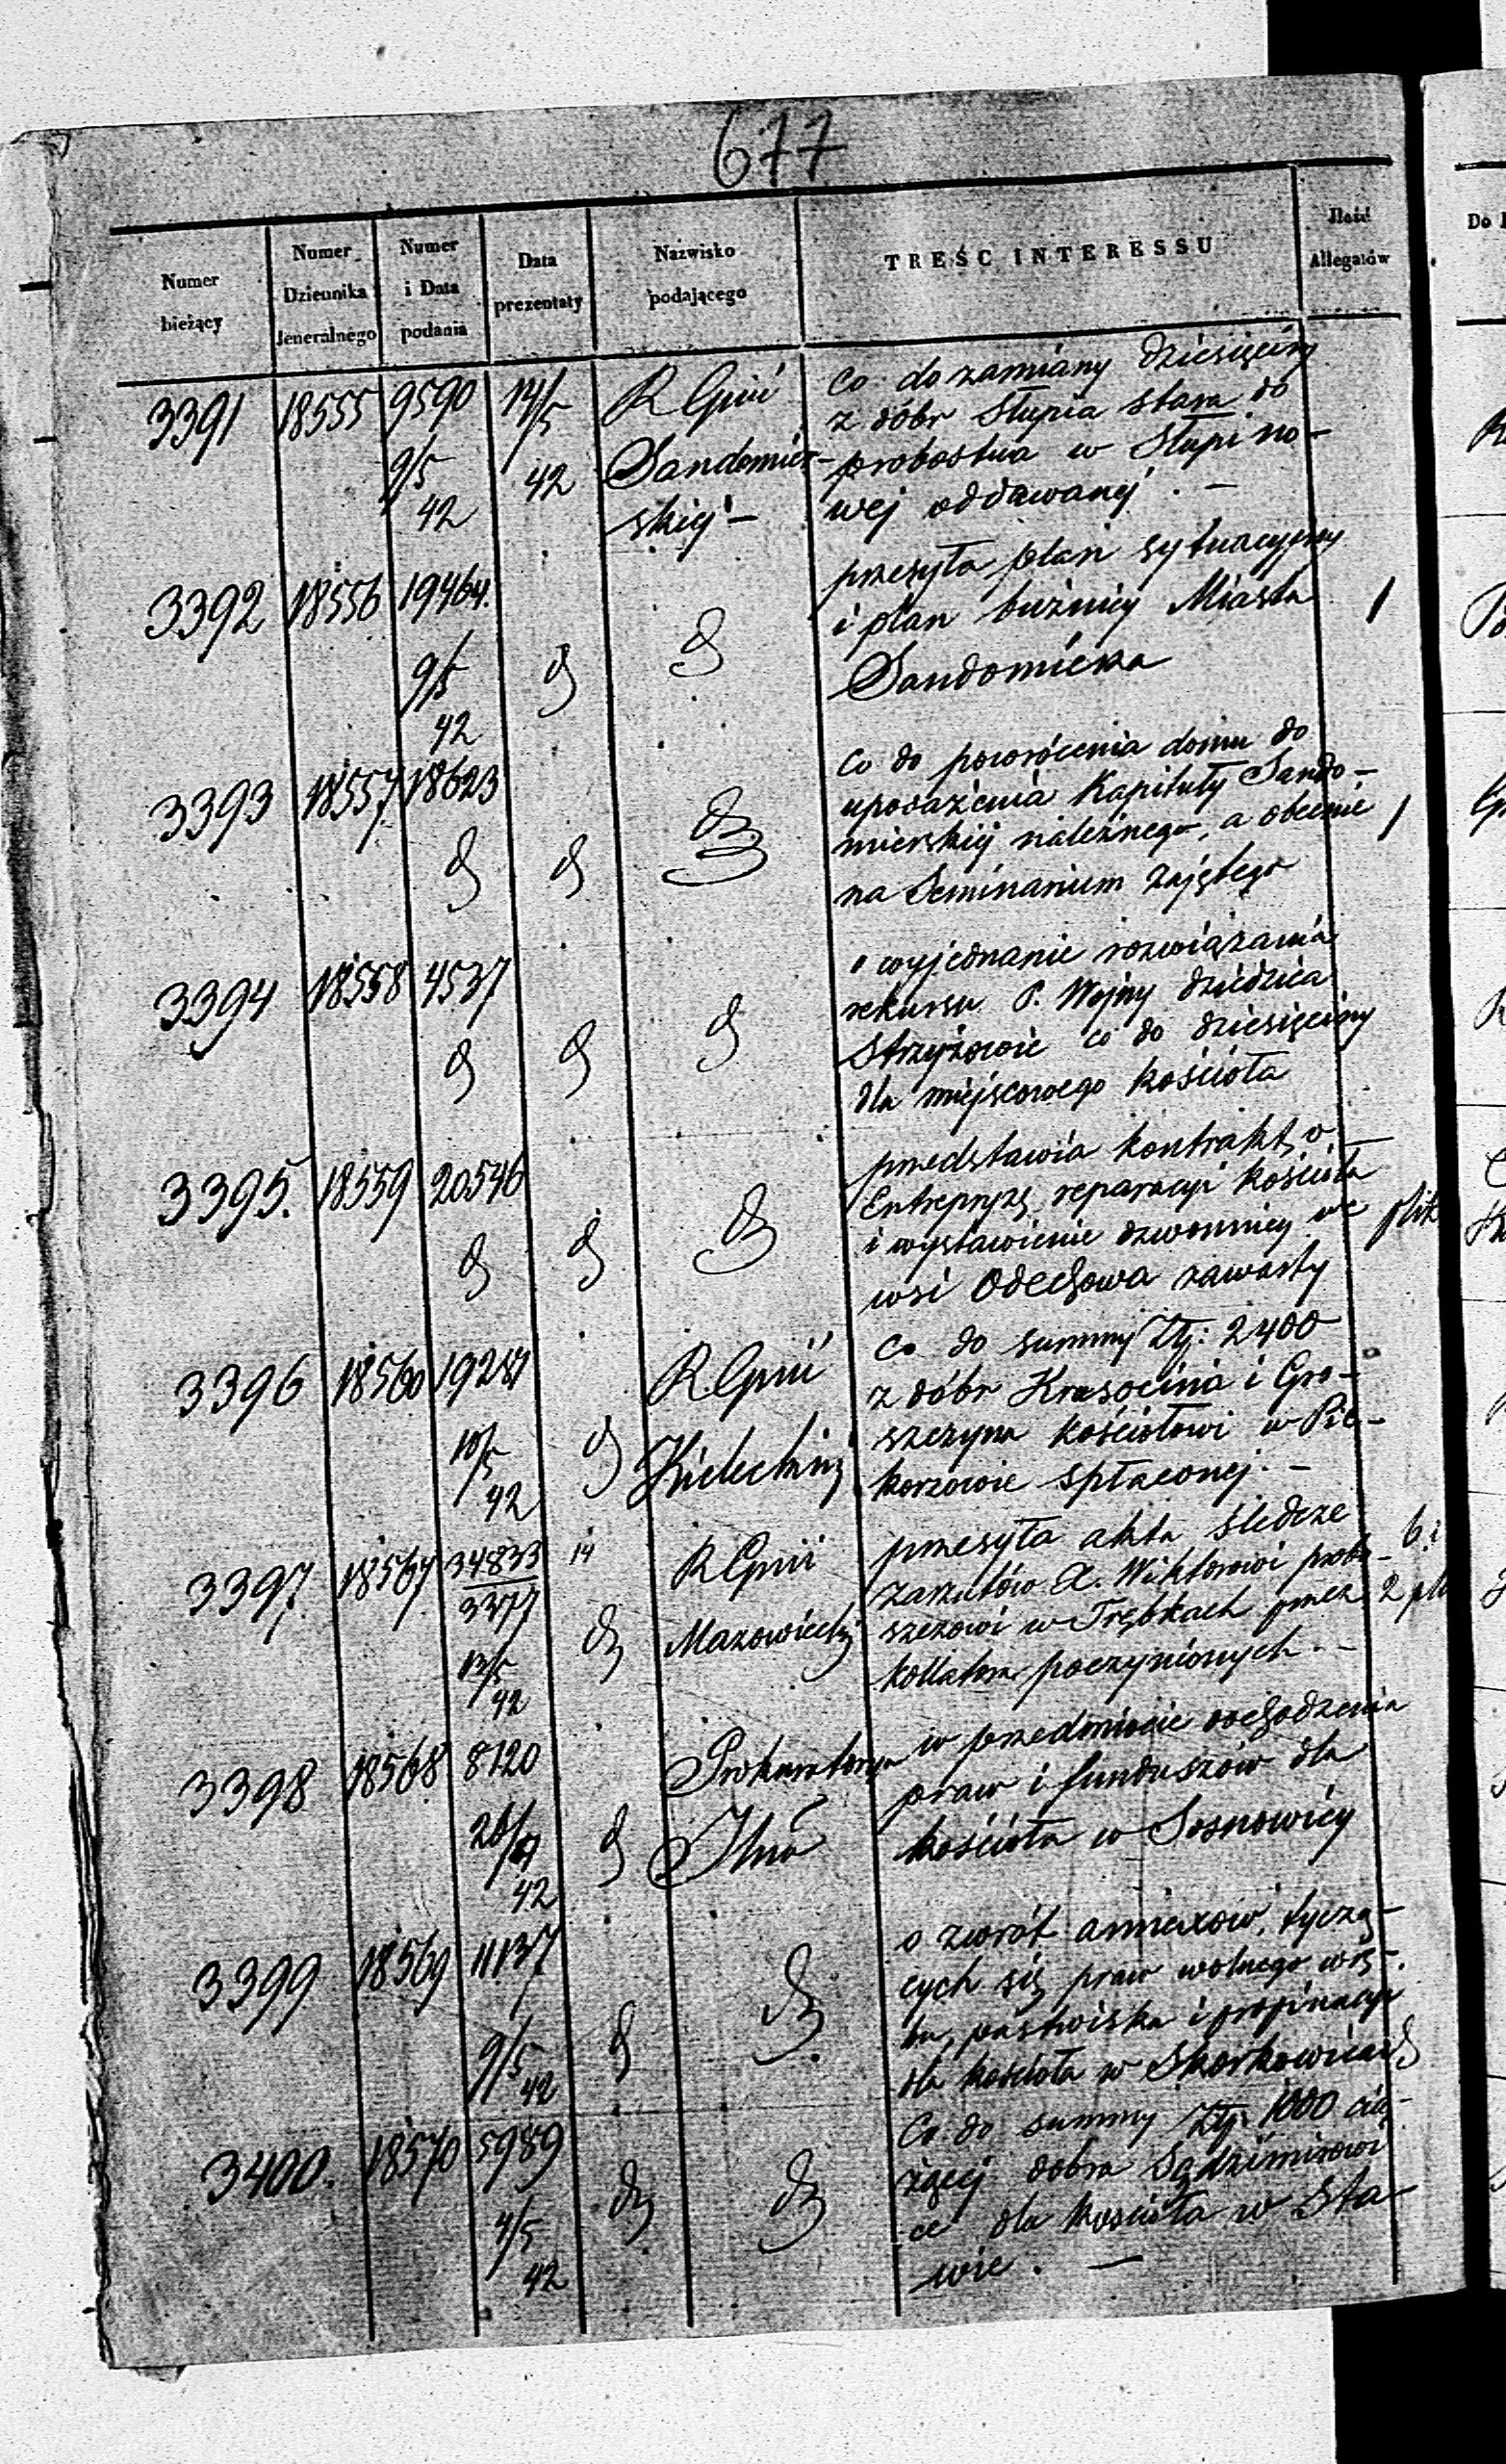 677
Numer bieżący
Numer Dziennika Jeneralnego
Numer i Data podania
Data prezentaty
Nazwisko podającego
TREŚĆ INTERESSU
Ilość Allegatów
3391 18555 9590 14/5 R Gpiii co do zamiany dziesięciny
z dóbr Słupia stara do
9/5 42 Sandomier- probostwa w Słupi no-
42 skiej - wej oddawanej. -
3392 18556 19464. przesyła plan sytuacyjny
i plan buźnicy Miasta 1
9/5 d d Sandomierza
42
3393 18557 18623 co do powrócenia domu do
uposażenia Kapituły Sando-
d d d mierskiej należnego, a obecnie 1
na Seminarium zajętego
3394 18558 4537 o wyjednanie rozwiązania
rekursu P. Wojny dziedzica
d d d Strzyżowic co do dziesięciny
dla miejscowego kościoła
3395. 18559 20546 przedstawia kontrakt o
Entrepryzę reparacyi kościoła
d d d i wystawienie dzwonnicy we plik
wsi Odechowa zawarty
3396 18560 R Gpiii co do summy Złp: 2400
z dóbr Krasocina i Gro-
10/5 d Kieleckiej szczyna kościołowi w Pie-
42 korzowie spłaconej. -
3397 18567 34833 14 R Gpiii przesyła akta śledcze
3377 zarzutów X. Wiktorowi probo- 6 i
13/5 d Mazowieckiej szczowi w Trębkach przez 2 pli
42 kollatora poczynionych. -
3398 18568 8120 Prokuratorya w przedmiocie dochodzenia
praw i funduszów dla
d kościoła w Sosnowicy
42
3399 18569 11137 o zwrót annexów, tyczą-
cych się praw wolnego wrę-
9/5 d d bu, pastwiska i propinacyi
42 dla kościoła w Skorkowicach
3400. 18570 5989 Co do summy Złp. 1000 cią-
d d żącej dobra Sędzimirowi
4/5 ce dla kościoła w Sta
42 wie. -